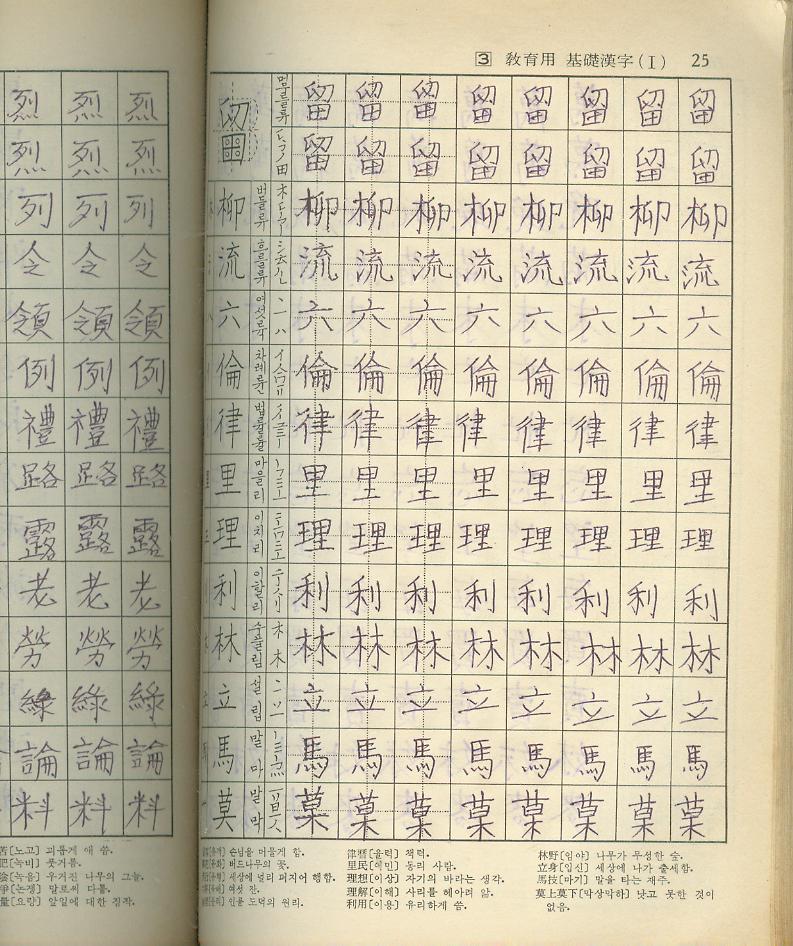 烈 烈 烈
烈 烈 烈
列 列 列
令 令 令
領 領 領
例 例 例
禮 禮 禮
路 路 路
露 露 露
老 老 老
勞 勞 勞
綠 綠 綠
論 論 論
料 料 料
[노고] 괴롭게 애 씀.
[녹비] 풋거름.
[녹음] 우거진 나무의 그늘.
[논쟁] 말로써 다툼.
量[요량] 앞일에 대한 짐작.
3 敎育用 基礎漢字(I) 25
留 머무를 류 留 留 留 留 留 留 留 留
留 留 留 留 留 留 留 留
柳 버들 류 柳 柳 柳 柳 柳 柳 柳 柳
流 흐를 류 流 流 流 流 流 流 流 流
六 여섯 륙 六 六 六 六 六 六 六 六
倫 차례 륜 倫 倫 倫 倫 倫 倫 倫 倫
律 법률 률 律 律 律 律 律 律 律 律
里 마을 리 里 里 里 里 里 里 里 里
理 이치 리 理 理 理 理 理 理 理 理
利 이할 리 利 利 利 利 利 利 利 利
林 수풀 림 林 林 林 林 林 林 林 林
立 설 립 立 立 立 立 立 立 立 立
馬 말 마 馬 馬 馬 馬 馬 馬 馬 馬
莫 말 막 莫 莫 莫 莫 莫 莫 莫 莫
손님을 머물게 함.
버드나무의 꽃.
세상에 널리 퍼지어 행함.
여섯 잔.
인물 도덕의 원리.
律曆[율력] 책력.
里民[이민] 동리 사람.
理想[이상] 자기의 바라는 생각.
理解[이해] 사리를 헤아려 앎.
利用[이용] 유리하게 씀.
林野[임야] 나무가 무성한 숲.
立身[입신] 세상에 나가 출세함.
馬技[마기] 말을 타는 재주.
莫上莫下[막상막하] 낫고 못한 것이
없음.